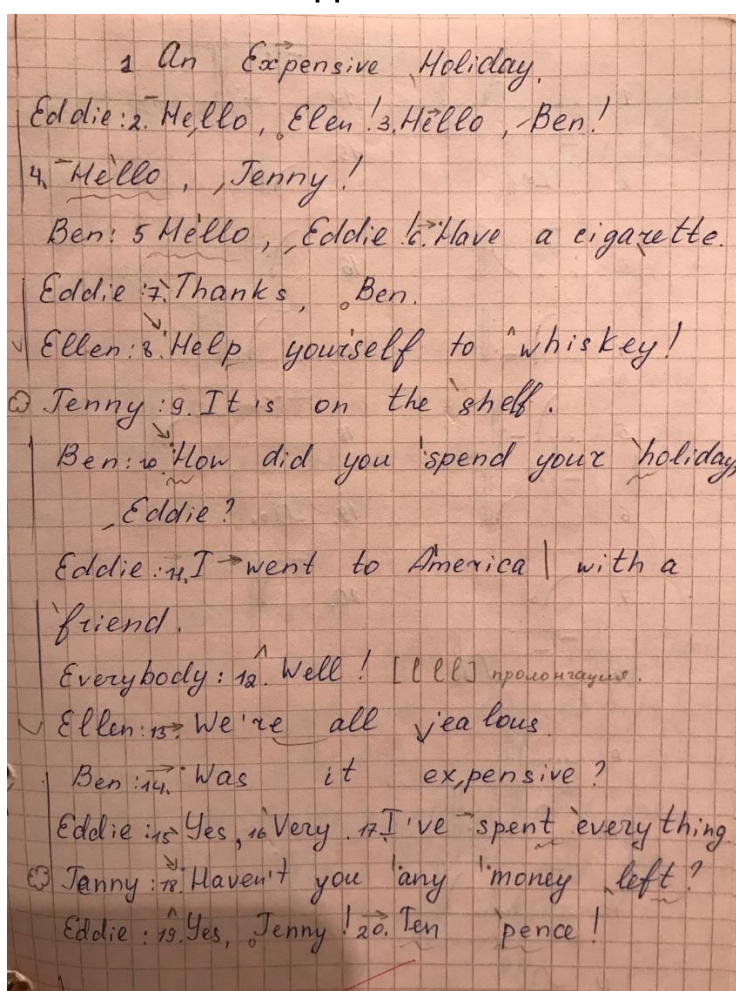 1 An Expensive Holiday.
Eddie: 2. Hello, Elen! 3. Hello, Ben!
4. Hello, Jenny!
Ben: 5 Hello, Eddie! 6. Have a cigarette.
Eddie: 7. Thanks, Ben.
Ellen: 8. Help yourself to whiskey!
Jenny: 9. It is on the shelf.
Ben: 10. How did you spend your holiday,
Eddie?
Eddie: 11. I went to America | with a
friend.
Everybody: 12. Well! [l l l] пролонгация.
Ellen: 13. We're all jealous.
Ben: 14. Was it expensive?
Eddie: 15 Yes, 16 Very. 17. I've spent everything
Jenny: 18. Haven't you any money left?
Eddie: 19. Yes, Jenny! 20. Ten pence!